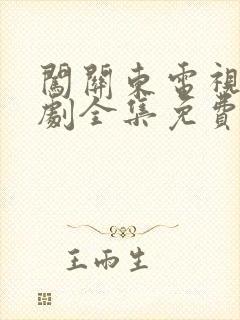 闖關東電視
劇全集免費
王雨生